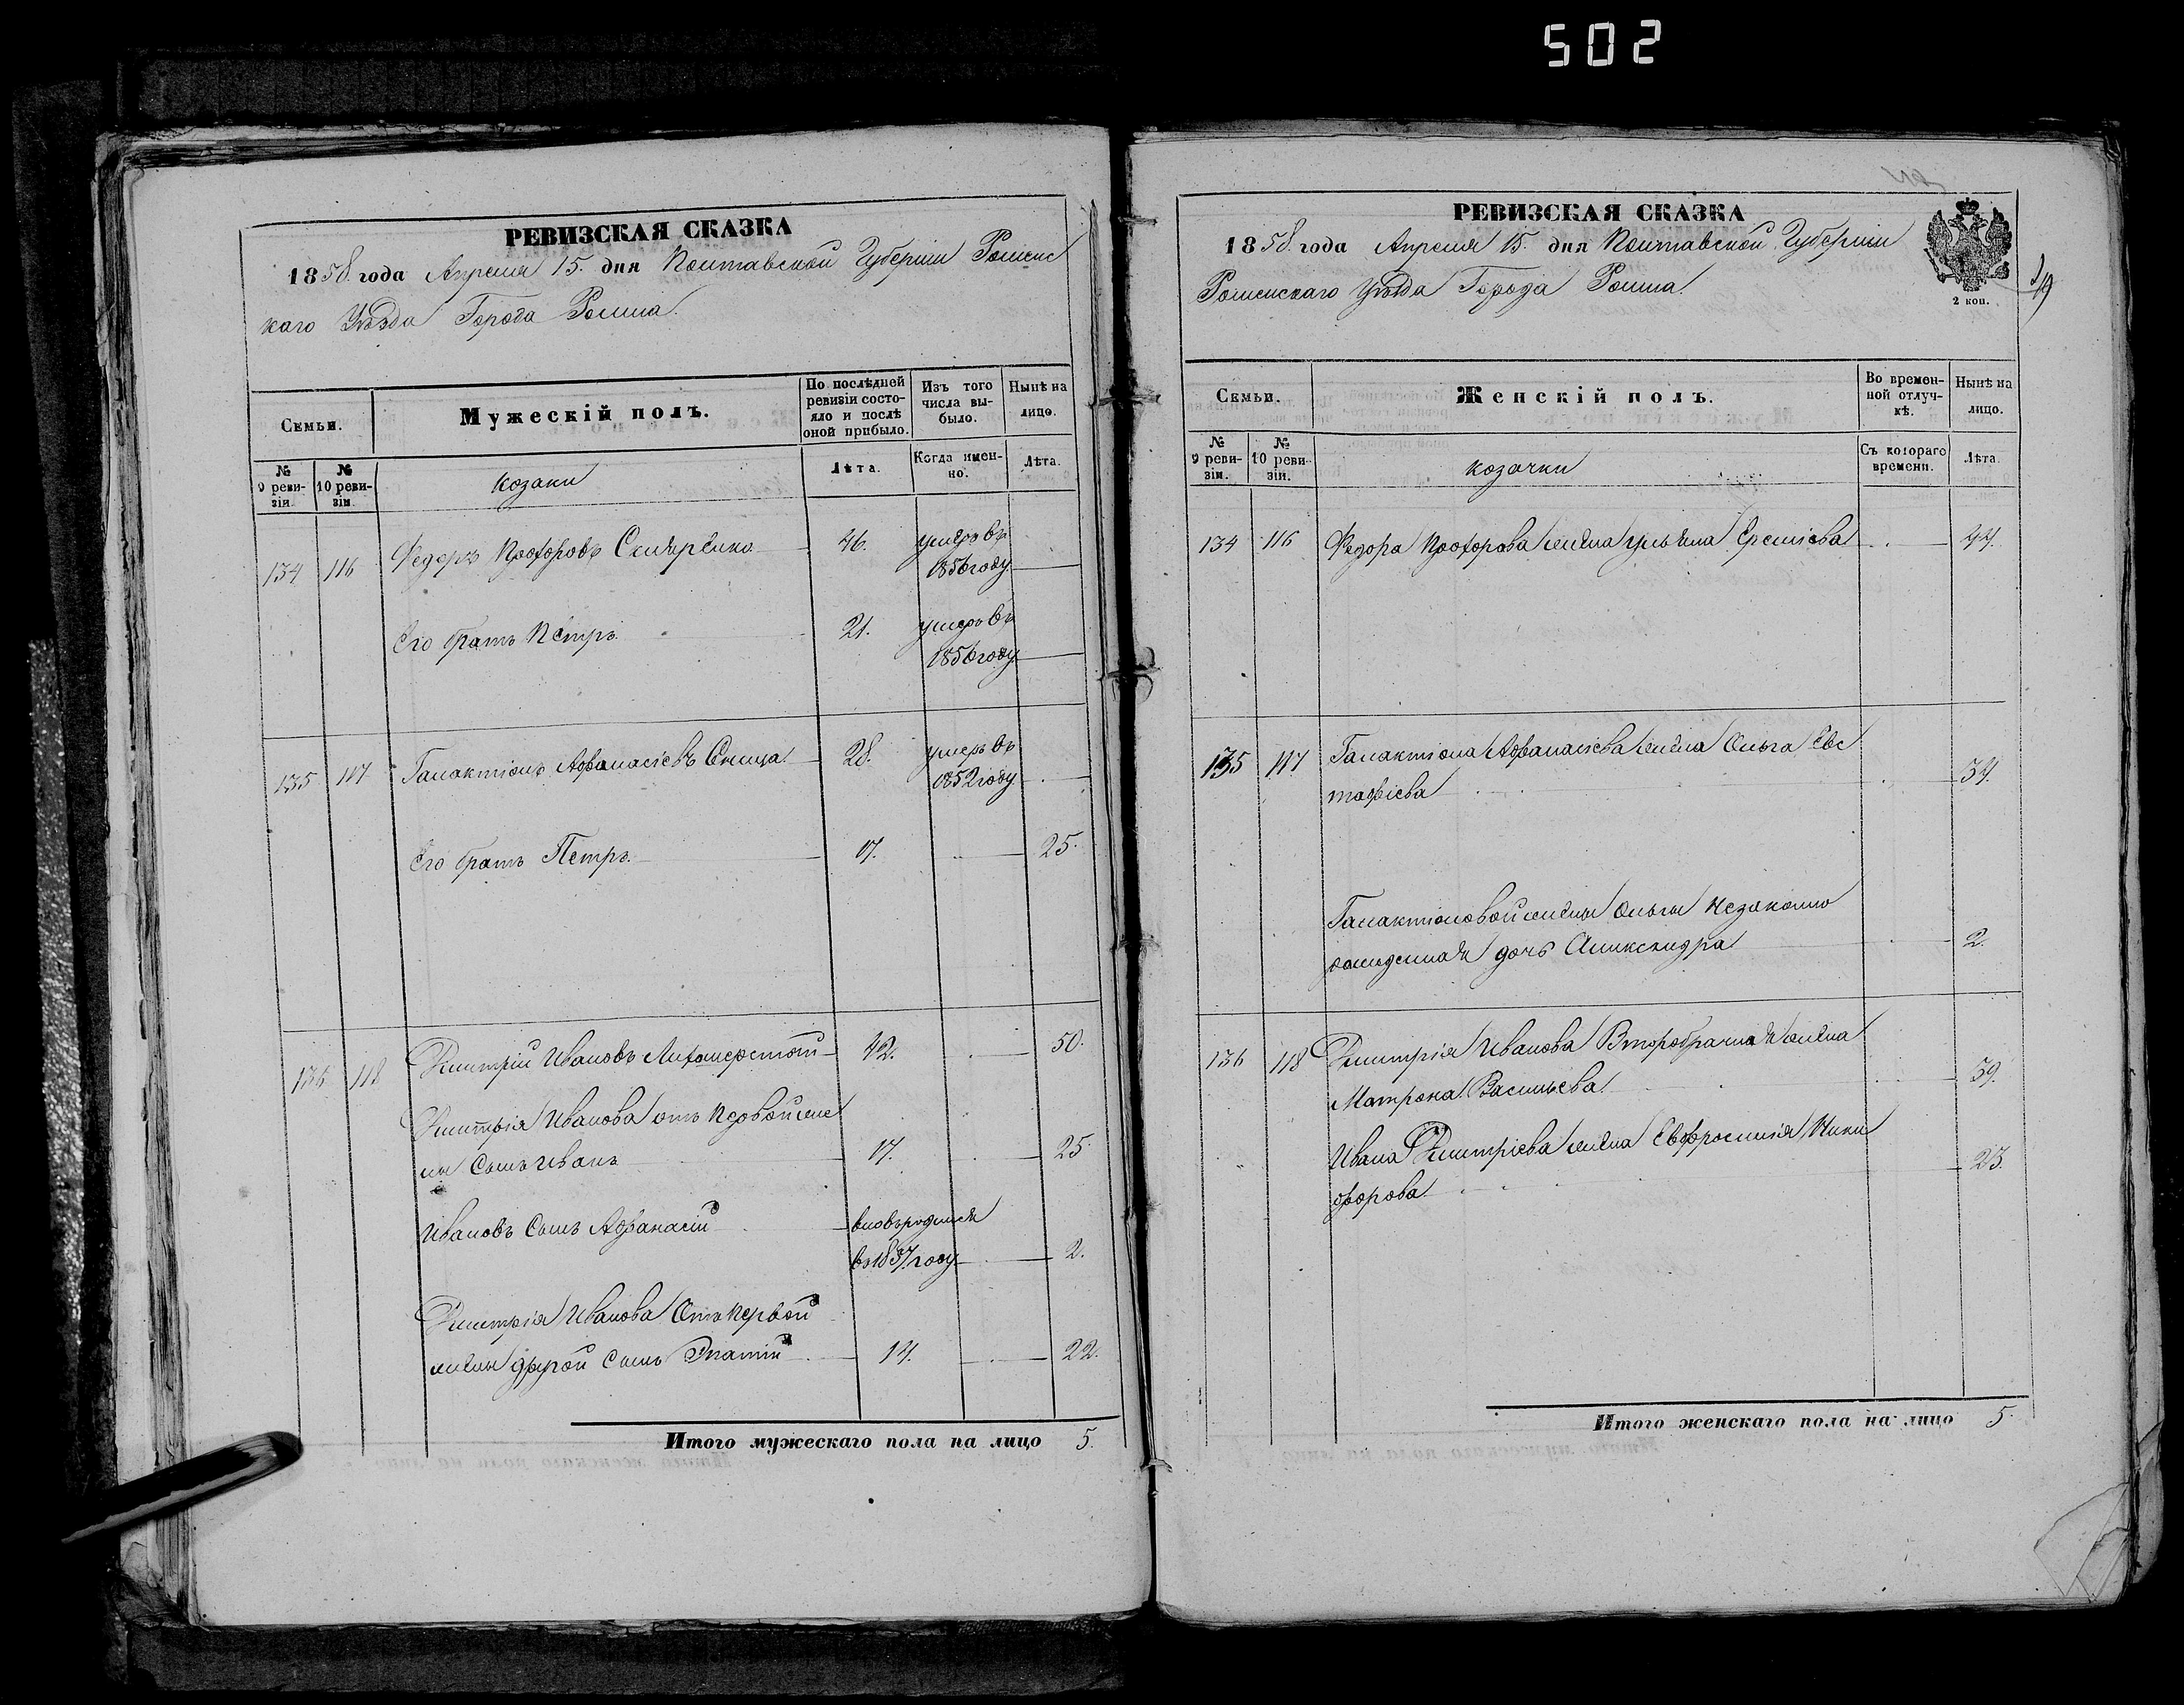 502
РЕВИЗСКАЯ СКАЗКА
1858 года Апреля 15. дня Полтавской Губерніи Роменс
каго Уѣзда Города Ромна.
Семьи.
Мужескій полъ.
По послѣдней ревизіи состояло и послѣ оной прибыло.
Изъ того числа выбыло.
Нынѣ на лицо.
№ 9 ревизіи.
№ 10 ревизіи.
Козаки
Лѣта.
Когда именно.
Лѣта.
134 116 Федоръ Прохоровъ 46. умеръ въ
1856 году
Его братъ Петръ. 21. умеръ въ
1856 году
135 117 Галактіонъ Афанасіевъ 28. умеръ въ
1852 году
Его братъ Петръ. 17. 25.
136 118 Димитрій Ивановъ 42. 50.
Димитрія Иванова отъ первой же
ны Сынъ Иванъ 17. 25
Ивановъ Сынъ Афанасій вновь родился
въ 1857 году 2.
Димитрія Иванова Отъ первой
жены другой сынъ Игнатій 14. 22.
Итого мужескаго пола на лицо 5.
РЕВИЗСКАЯ СКАЗКА
1858. года Апреля 15. дня Полтавской Губерніи
Роменскаго Уѣзда Города Ромна.
2 коп.
Семьи.
Женскій полъ.
Во временной отлучкѣ.
Нынѣ на лицо.
№ 9 ревизіи.
№ 10 ревизіи.
козачки
Съ котораго времени.
Лѣта.
134 116 Федора Прохорова жена Ульяна Еремієва 44.
135 117 Галактіона Афанасіева жена Ольга Евс
тафіева 34.
Галактіоновой жены Ольги незаконно
рожденная дочь Александра 2.
136 118 Димитрія Иванова Второбрачная жена
Матрона Васильева 39.
Ивана Димитріева жена Евфросинія Ники
форова 23.
Итого женскаго пола на лицо 5.